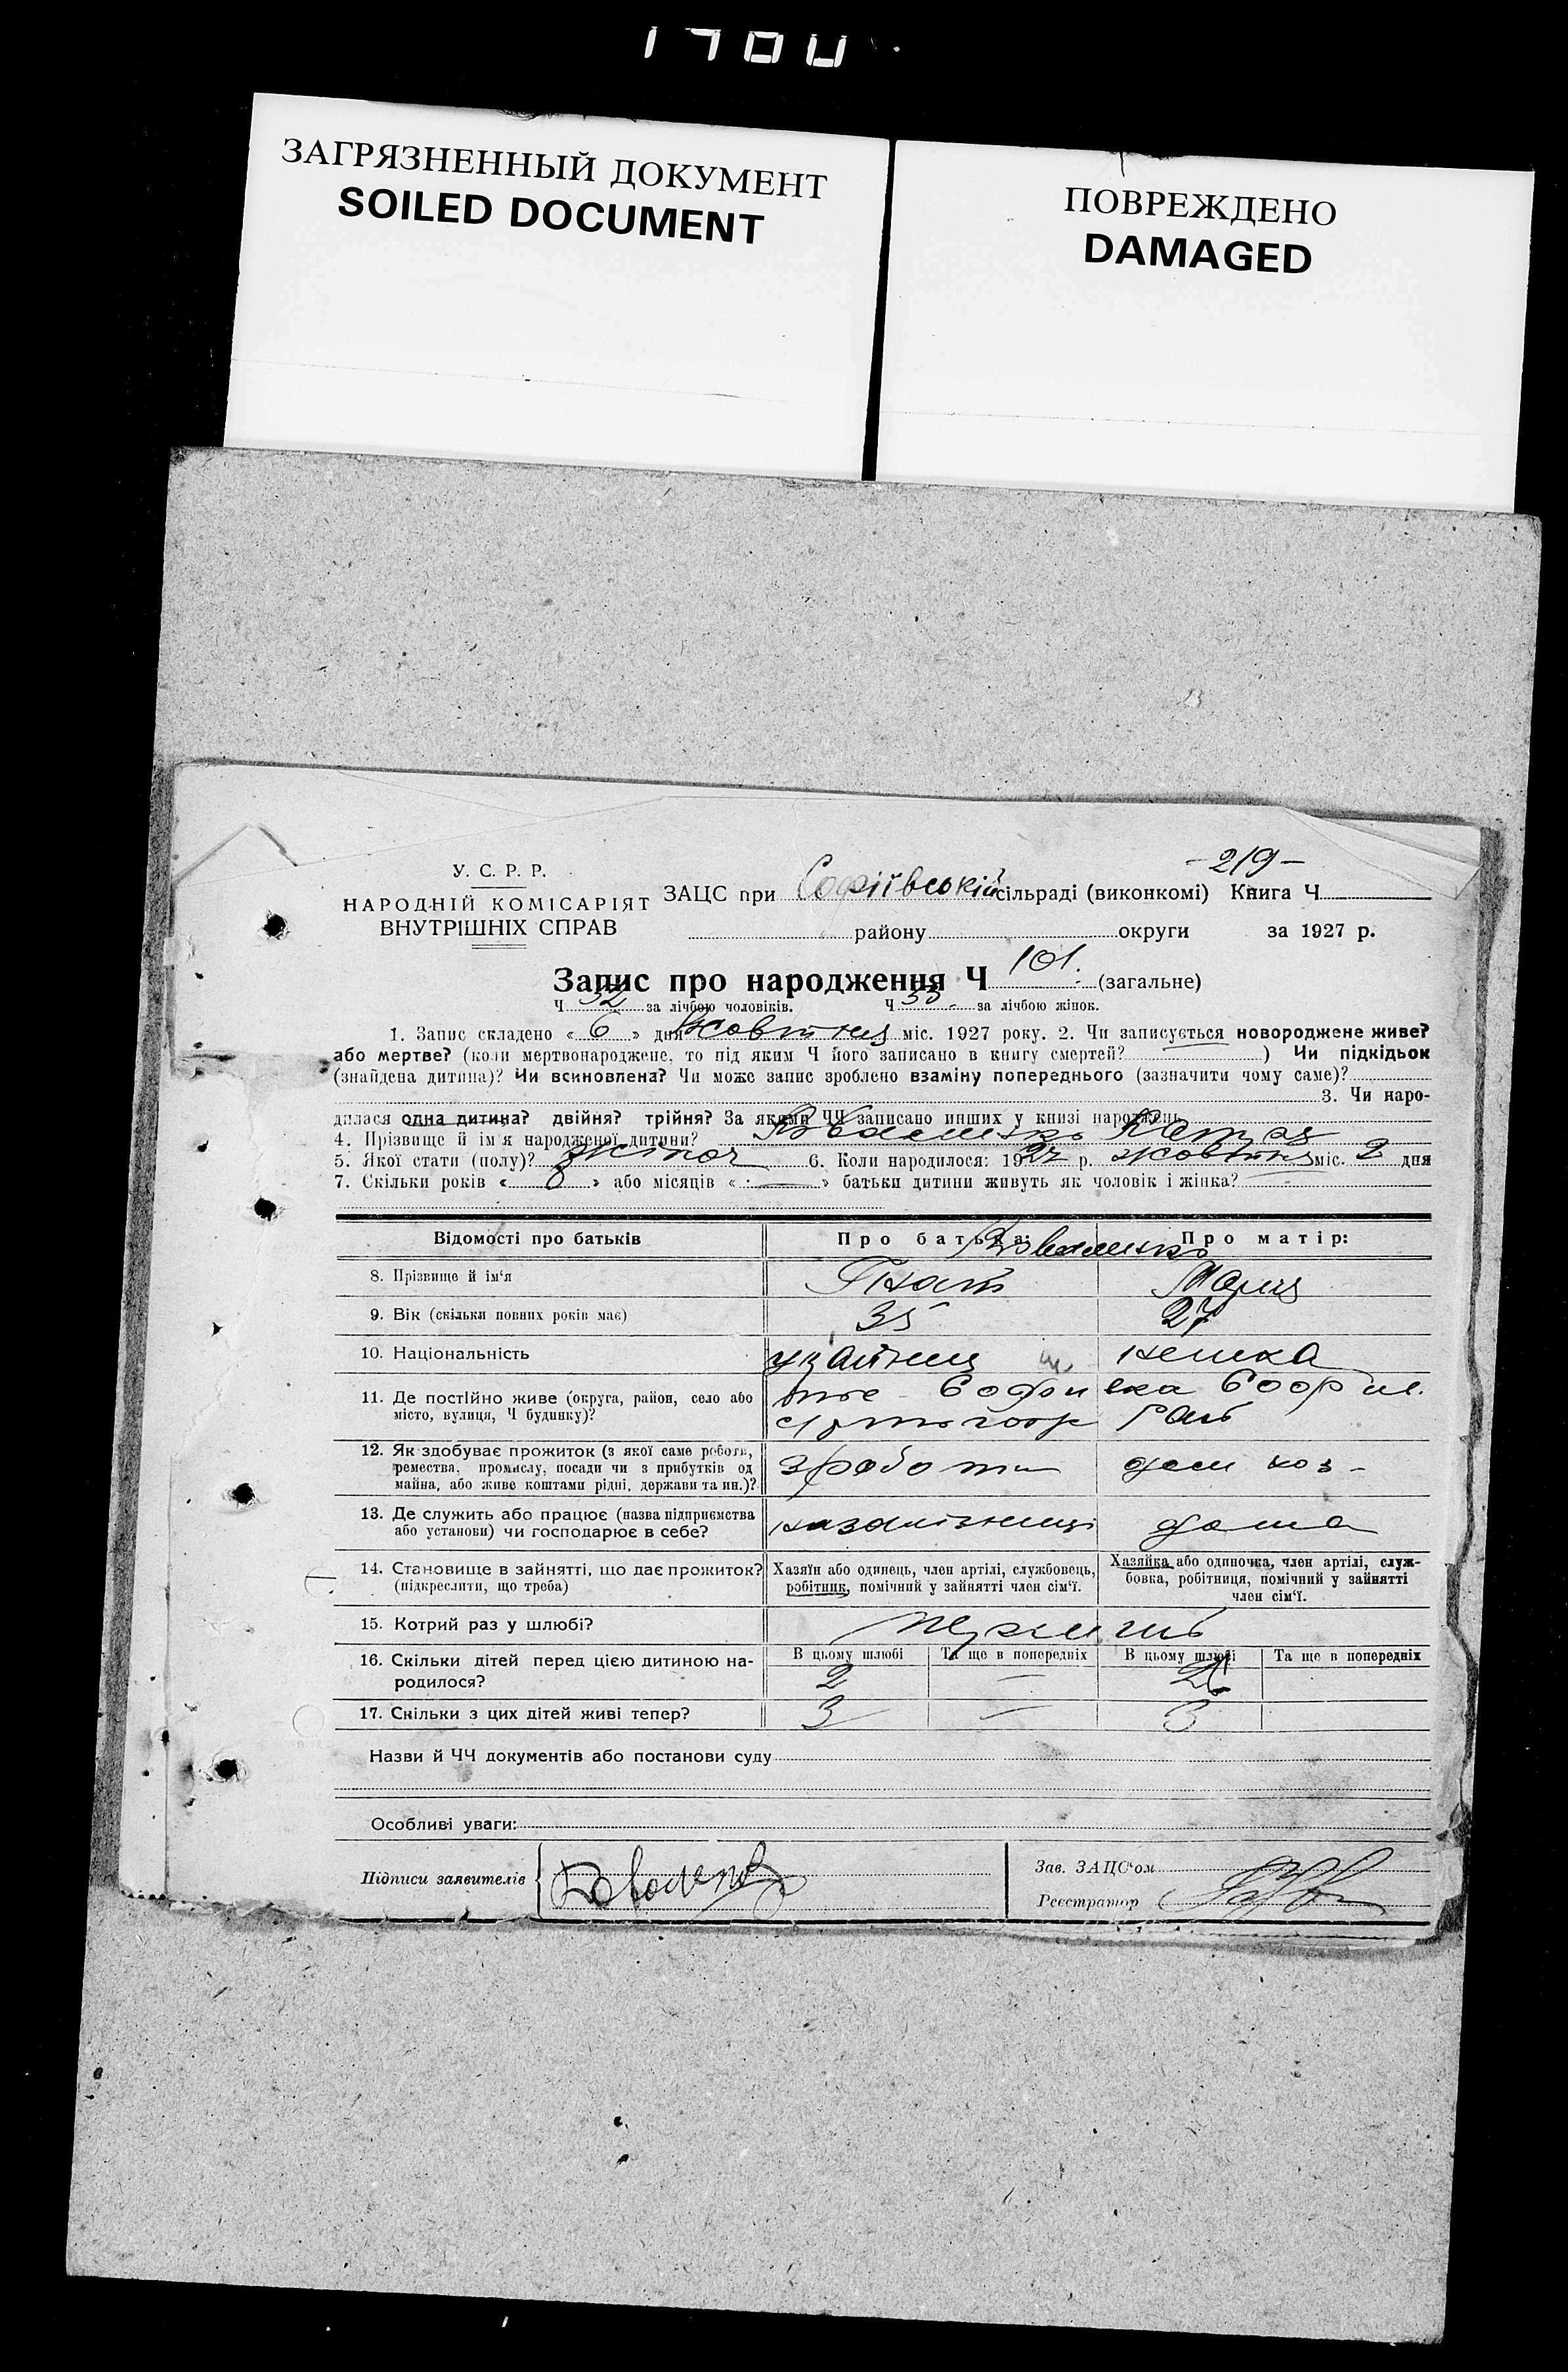 1700
ЗАГРЯЗНЕННЫЙ ДОКУМЕНТ
SOILED DOCUMENT
ПОВРЕЖДЕНО
DAMAGED
-219-
У. С. Р. Р.
НАРОДНІЙ КОМІСАРІЯТ
ВНУТРІШНІХ СПРАВ
ЗАЦС при Софіївській сільраді (виконкомі) Книга Ч.
району округи за 1927 р.
Запис про народження Ч 101. (загальне)
Ч 52 за лічбою чоловіків. Ч за лічбою жінок.
1. Запис складено « 6 » дня Жовтня міс. 1927 року. 2. Чи записується новороджене живе?
або мертве? (коли мертвонароджене, то під яким Ч його записано в книгу смертей? ) Чи підкідьок
(знайдена дитина)? Чи всиновлена? Чи може запис зроблено взаміну попереднього (зазначити чому саме)?
3. Чи наро-
дилася одна дитина? двійня? трійня? За якими ЧЧ записано инших у книзі народжень
4. Прізвище й ім'я народженої дитини? Коваленко
5. Якої стати (полу)? жіноч 6. Коли народилося: 1927 р. жовтня міс. 2 дня
7. Скільки років « 8 » або місяців « — » батьки дитини живуть як чоловік і жінка? —
Відомості про батьків
Про батька: Про матір:
Коваленко
8. Прізвище й ім'я Гнат Марія
9. Вік (скільки повних років має) 35 27
10. Національність українец немка
11. Де постійно живе (округа, район, село або
місто, вулиця, Ч будинку)?
Софиевка
12. Як здобуває прожиток (з якої саме роботи,
ремества, промислу, посади чи з прибутків од
майна, або живе коштами рідні, держави та ин.)?
з роботи дом хоз-
13. Де служить або працює (назва підприємства
або установи) чи господарює в себе?
на залізниці дома
14. Становище в зайнятті, що дає прожиток?
(підкреслити, що треба)
Хазяїн або одинець, член артілі, службовець,
робітник, помічний у зайнятті член сім'ї.
Хазяйка або одиночка, член артілі, служ-
бовка, робітниця, помічний у зайнятті
член сім'ї.
15. Котрий раз у шлюбі?
16. Скільки дітей перед цією дитиною на-
родилося?
В цьому шлюбі Та ще в попередніх В цьому шлюбі Та ще в попередніх
2 — 2
17. Скільки з цих дітей живі тепер? 3 — 3
Назви й ЧЧ документів або постанови суду
Особливі уваги:
Підписи заявителів
Зав. ЗАЦС'ом
Реєстратор